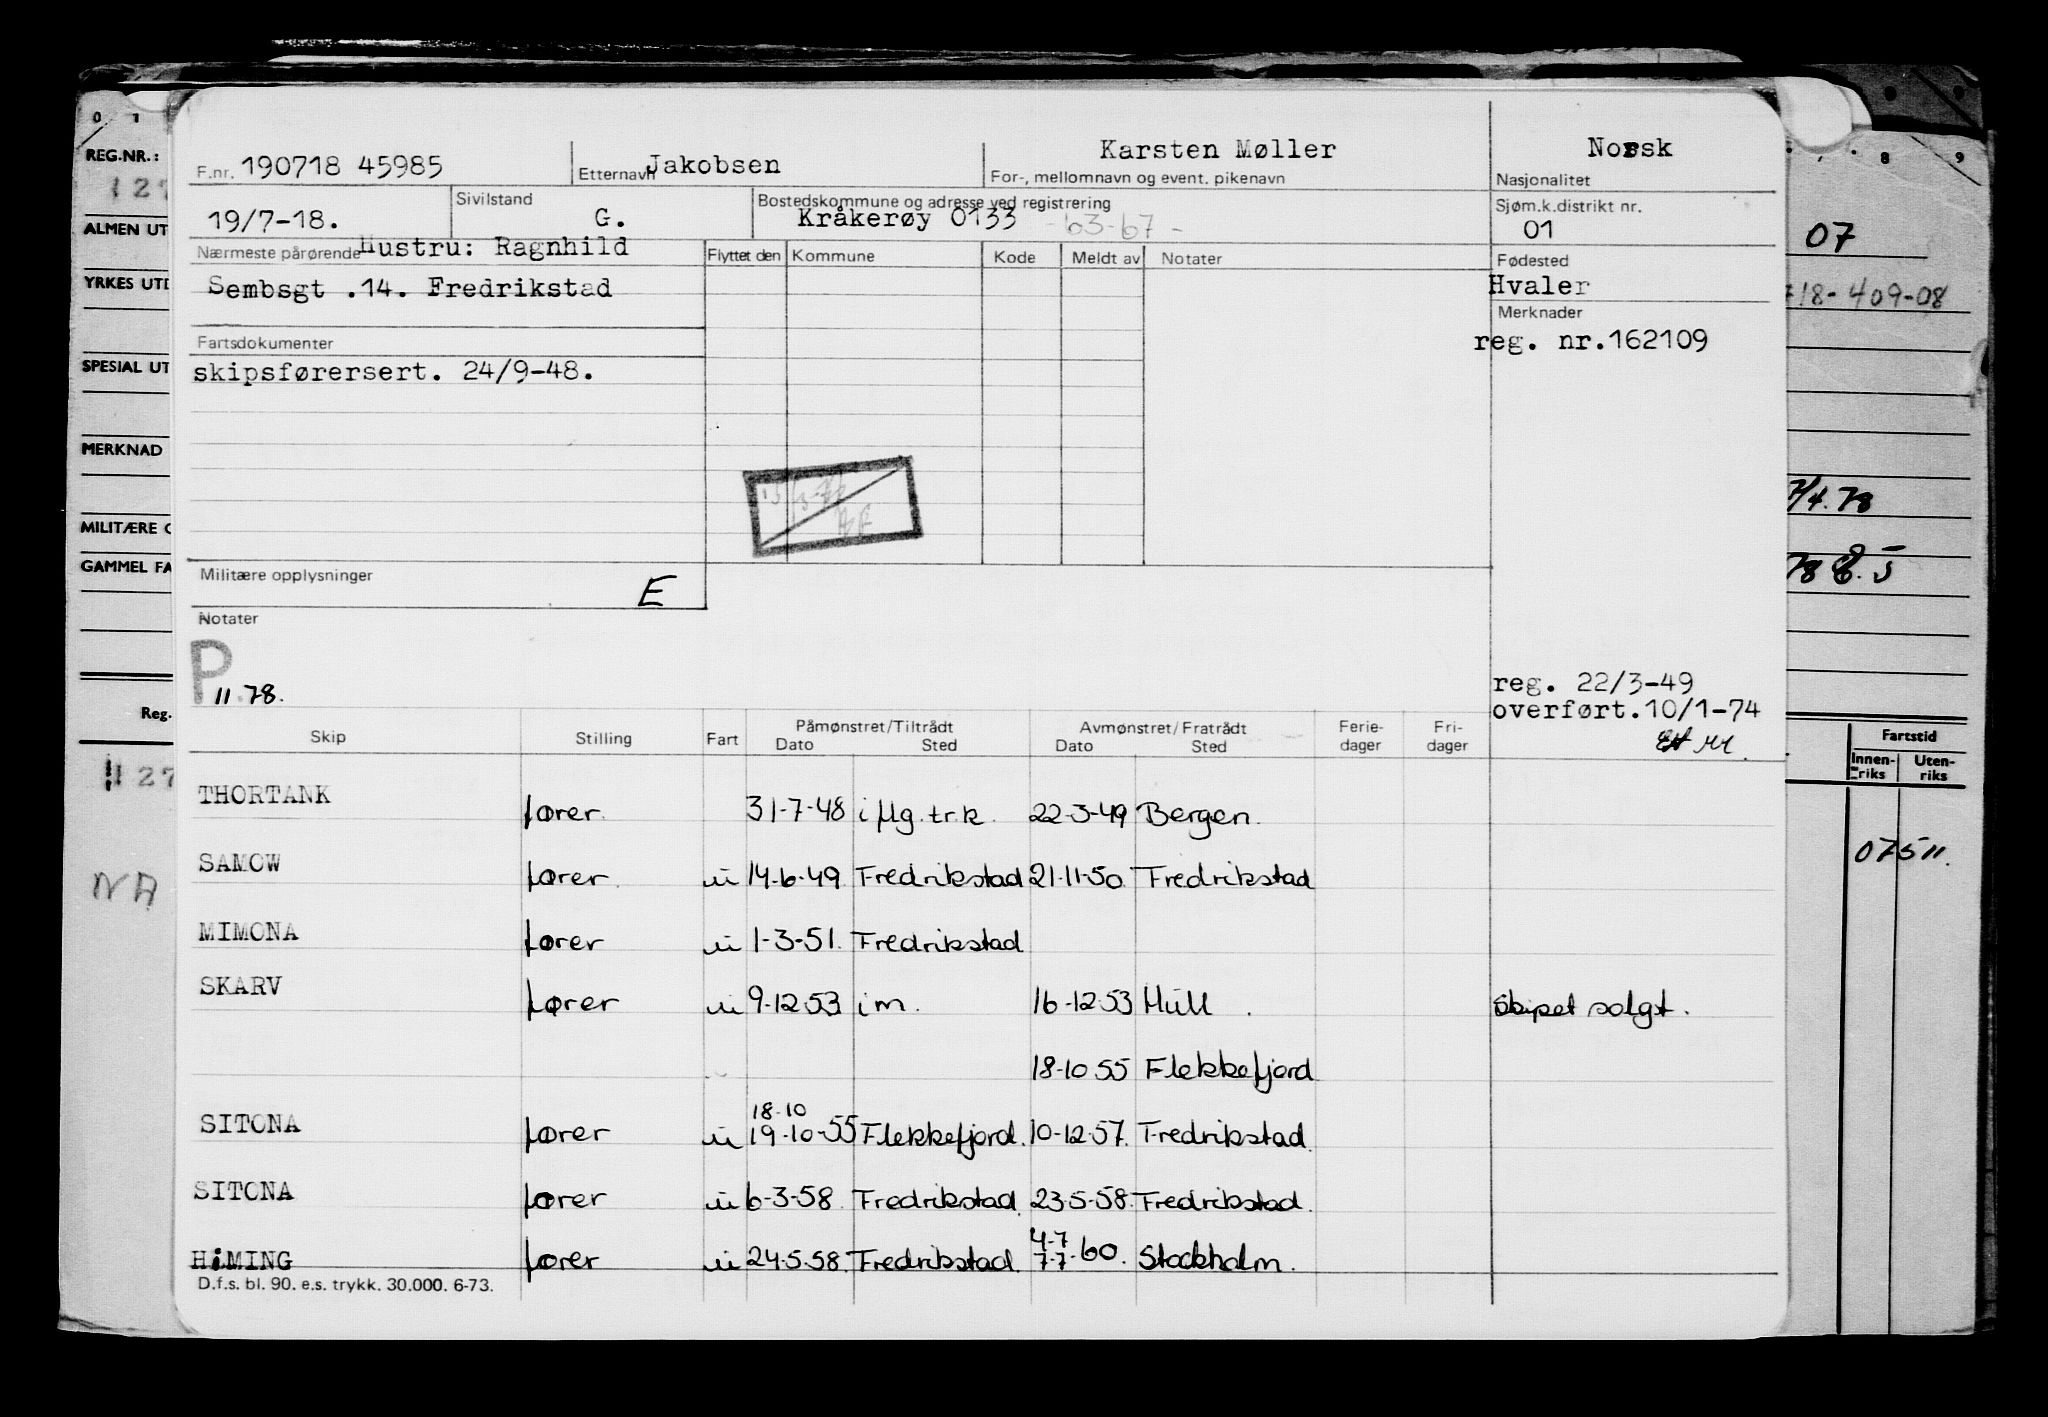 0 1 8 9
REG.NR.:
ALMEN UT
YRKES UTD
SPESIAL UT
MERKNAD
MILITÆRE O
GAMMEL FA
Reg.
NA
F.nr. 190718 45985 Etternavn Jakobsen Karsten Møller For-, mellomnavn og event. pikenavn Norsk Nasjonalitet
19/7-18. Sivilstand G. Bostedskommune og adresse ved registrering Kråkerøy 0133 - 63-67 - Sjøm.k.distrikt nr. 01
Nærmeste pårørende Hustru: Ragnhild Flyttet den Kommune Kode Meldt av Notater Fødested
Sembsgt .14. Fredrikstad Hvaler
Merknader
Fartsdokumenter reg. nr.162109
skipsførersert. 24/9-48.
Militære opplysninger E
Notater
P
11.78.
reg. 22/3-49
overført.10/1-74
Skip Stilling Fart Påmønstret/Tiltrådt Dato Sted Avmønstret/Fratrådt Dato Sted Ferie-dager Fri-dager
THORTANK fører. 31-7-48 i flg. tr.k. 22-3-49 Bergen.
SAMOW fører. u 14-6-49. Fredrikstad 21-11-50. Fredrikstad
MIMONA fører u 1-3-51. Fredrikstad
SKARV fører u 9-12-53 i m. 16-12-53 Hull. Skipet solgt.
18-10-55 Flekkefjord
18-10
SITONA fører u 19-10-55 Flekkefjord. 10-12-57. Fredrikstad.
SITONA fører u 6-3-58. Fredrikstad. 23-5-58. Fredrikstad.
4-7
HEMING fører u 24-5-58. Fredrikstad. 7-7-60. Stockholm.
D.f.s. bl. 90. e.s. trykk. 30.000. 6-73.
07
718-409-08
7/4.78
Fartstid
Innen-riks Uten-riks
07511.